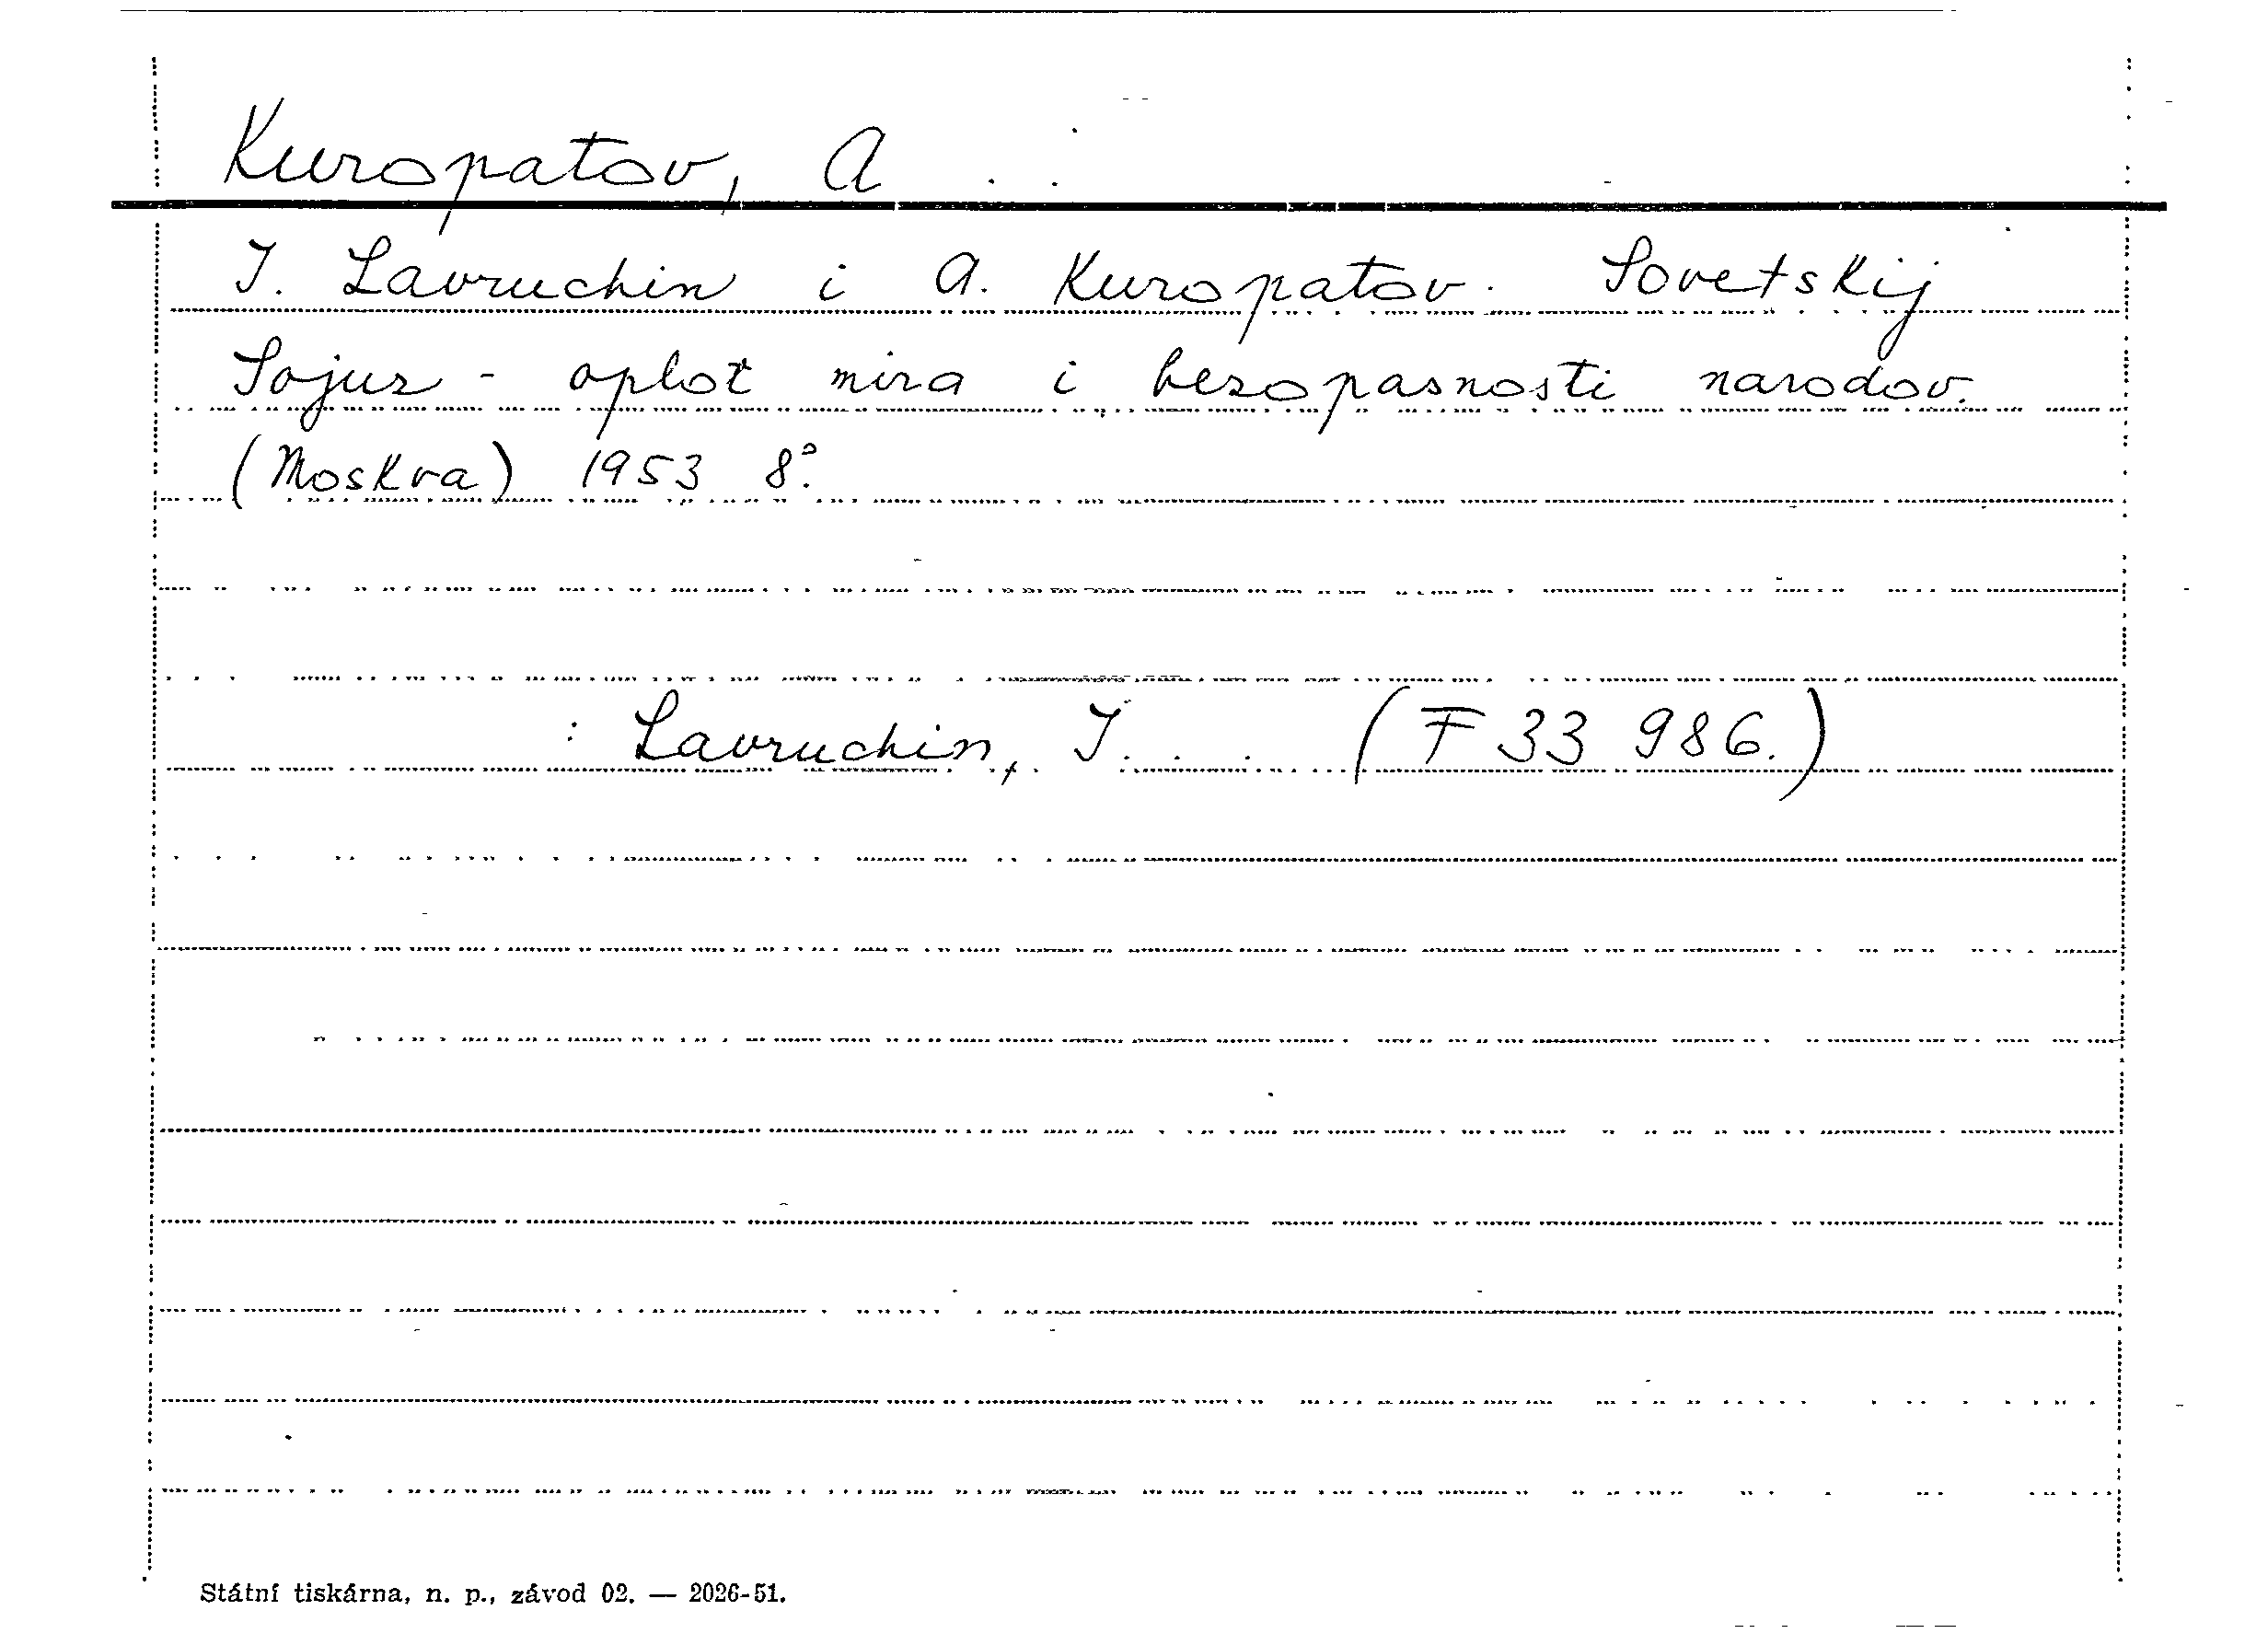 Kuropatov, A . .
I. Lavruchin i A. Kuropatov. Sovetskij
Sojuz - oplot mira i bezopasnosti narodov.
(Moskva) 1953 8°.
: Lavruchin, I. . . (F 33 986.)
Státní tiskárna, n. p., závod 02. — 2026-51.